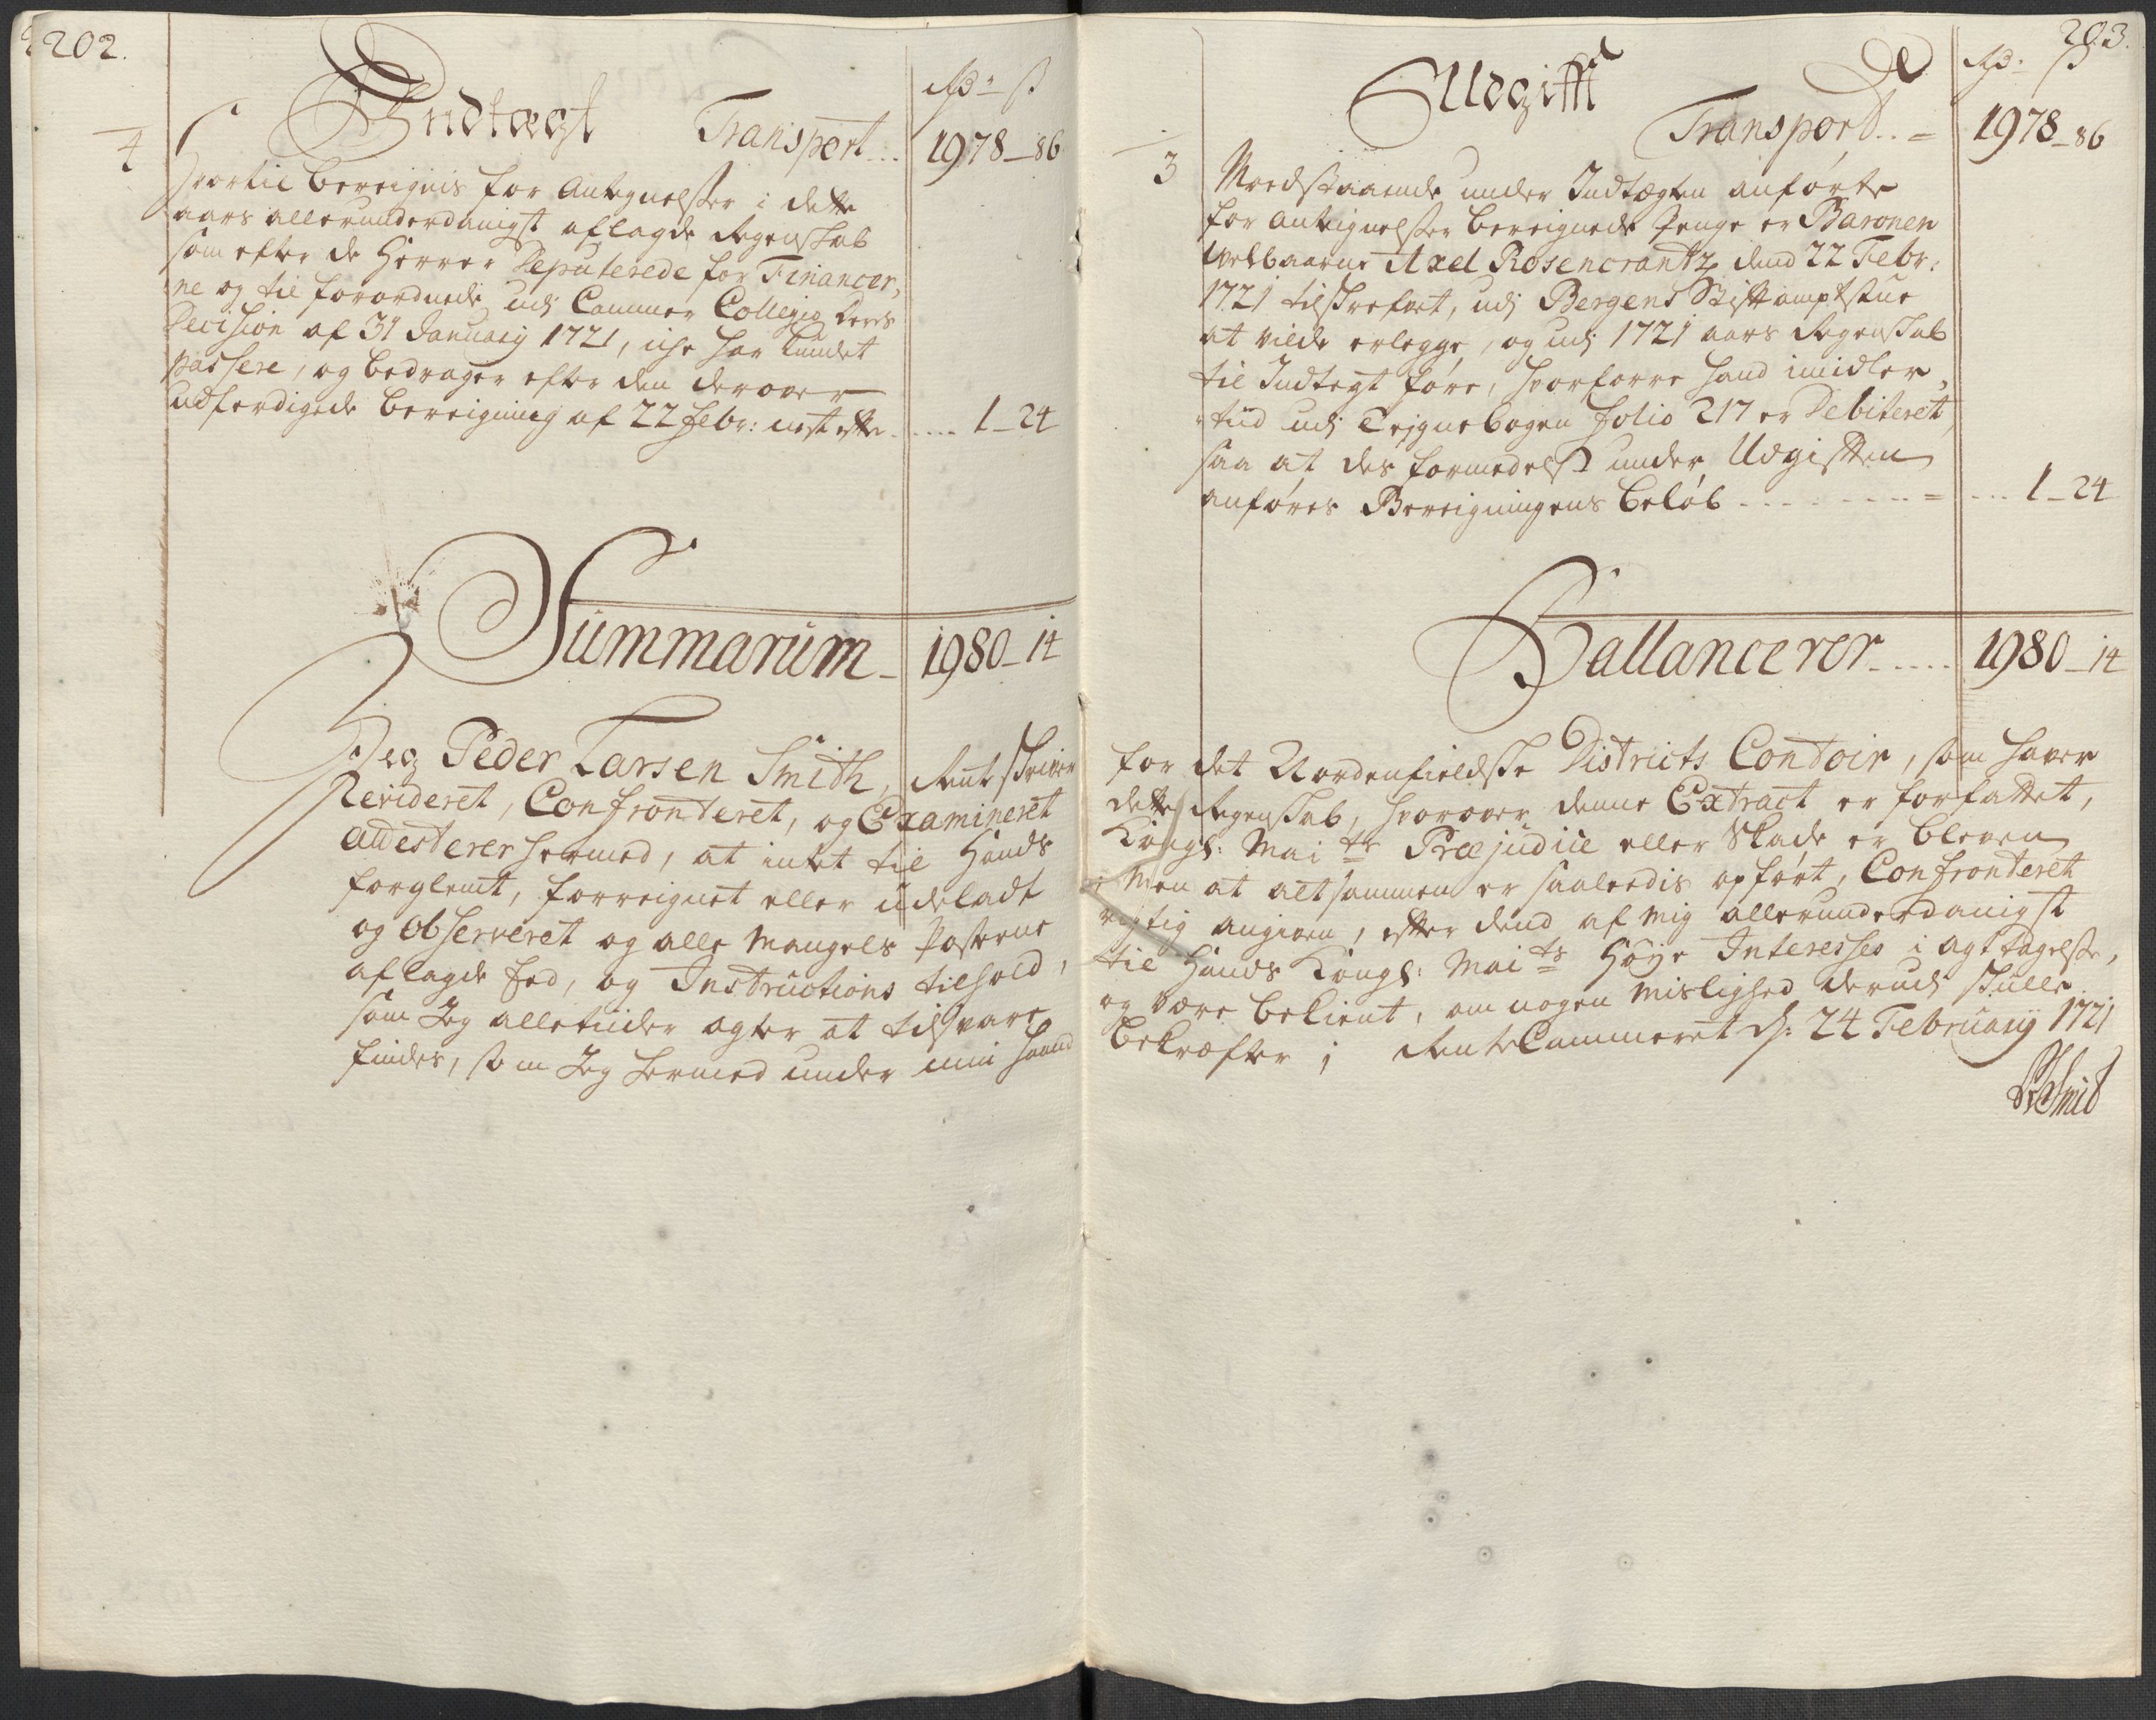 202.
Indtægt
Rdr ß
Transport... 1978 – 86
4
Hvortil bereignis for Antegnelsser i dette
aars allerunderdanigst aflagde Regenskab
som efter de Herrer Deputerede for Financer,
ne og til forordnede udj Cammer Collegio deres
Decision af 31 January 1721, icke har kundet
passere, og bedrager efter den derover
udferdigede bereigning af 22 Febr: nest efter ..... 1 – 24
Summarum – 1980 – 14
Jeg Peder Larsen Smith, Rentskriver
Revideret, Confronteret, og Examineret
attesterer hermed, at intet til Hands
forglemt, forreignet eller udeladt
og observeret og alle Mangels Posterne
aflagde Eed, og Instructions tilhold,
som Jeg alletiider agter at tilsvare,
findes, som Jeg hermed under min haand
203.
Udgifft
Rdr ß
Transport.. = 1978 – 86
3
Modstaaende under Indtægten anförte
for Antignelsser bereignede Penge er Baronen
Welbaarne Axel Rosencrantz dend 22 Febr:
1721 tilskrefvet, udj Bergens Stiftamptstue
at vilde erlegge, og udj 1721 aars Regenskab
til Indtegt före, hvorforre hand imidler,
tiid udj Tejgnebogen folio 217 er Debiteret,
saa at des formedelst under Udgiften
anföres Bereigningens belöb - - - - - - = ... 1 – 24
Ballancerer ..... 1980 – 14
for det Nordenfieldske Districts Contoir, som haver
dette Regenskab, hvorover denne Extract er forfattet,
Kongl: Maits Præjudice eller Skade er bleven
Men at altsammen er saaledis opfört, Confronteret
rigtig angiven, efter dend af mig allerunderdanigst
til Hands Kongl: Maits Höye Interesses i agttagelse,
og være bekient, om nogen Mislighed derudj skulle
bekræfter i RenteCammeret d: 24 February 1721
PLSmid